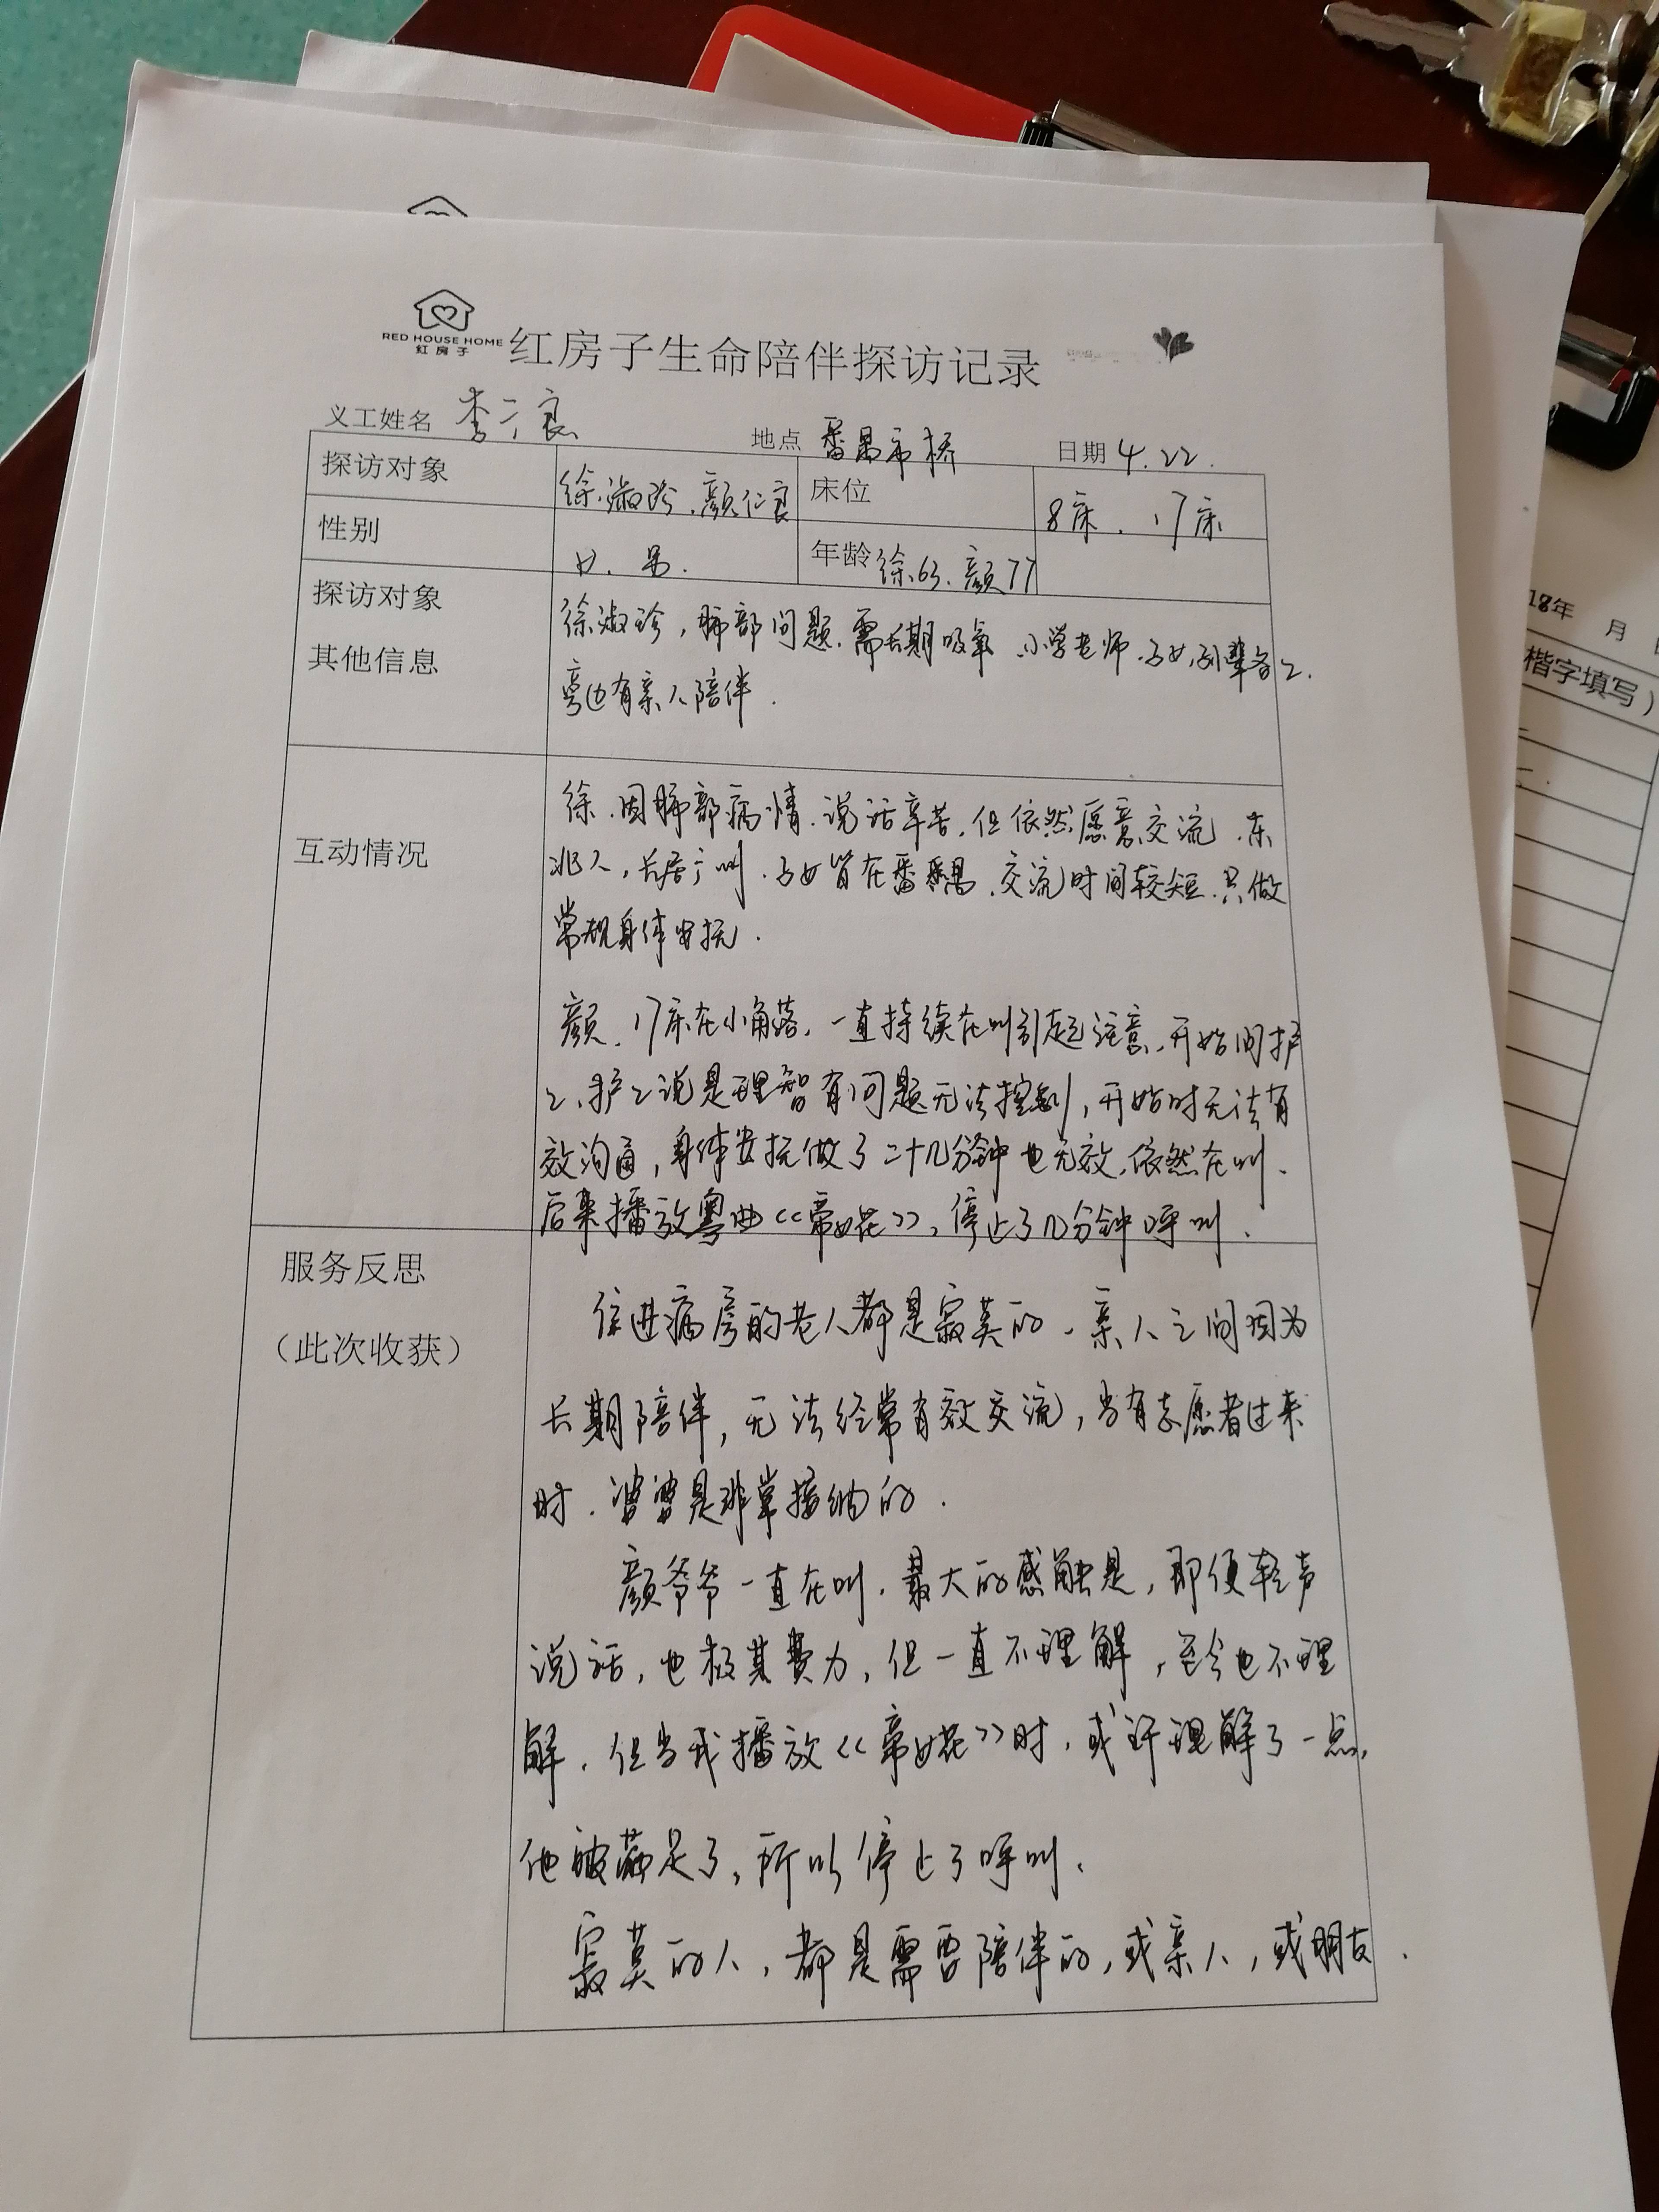 RED HOUSE HOME
红房子
红房子生命陪伴探访记录
义工姓名 李子良 地点 番禺市桥 日期 4.22.
探访对象 徐淑珍、颜仁良 床位 8床、17床
性别 女、男. 年龄 徐63、颜77
探访对象
其他信息
徐淑珍，肺部问题.需长期吸氧、小学老师.子女
旁边有亲人陪伴.
互动情况
徐.因肺部病情.说话辛苦,但依然愿意交流.东
北人,长居广州.子女皆在番禺.交流时间较短.只做
常规身体安抚.
颜、17床在小角落,一直持续在叫引起注意,开始问护
工,护工说是理智有问题无法控制,开始时无法有
效沟通,身体安抚做了二十几分钟也无效,依然在叫.
后来播放粤曲<<帝女花>>,停止了几分钟呼叫.
服务反思
（此次收获）
住进病房的老人都是寂寞的.亲人之间因为
长期陪伴,无法经常有效交流,当有志愿者过来
时.婆婆是非常接纳的.
颜爷爷一直在叫.最大的感触是,即便轻声
说话,也极其费力,但一直不理解,至今也不理
解.但当我播放<<帝女花>>时,或许理解了一点,
他被满足了,所以停止了呼叫.
寂莫的人,都是需要陪伴的,或亲人,或朋友.
18年 月
楷字填写）